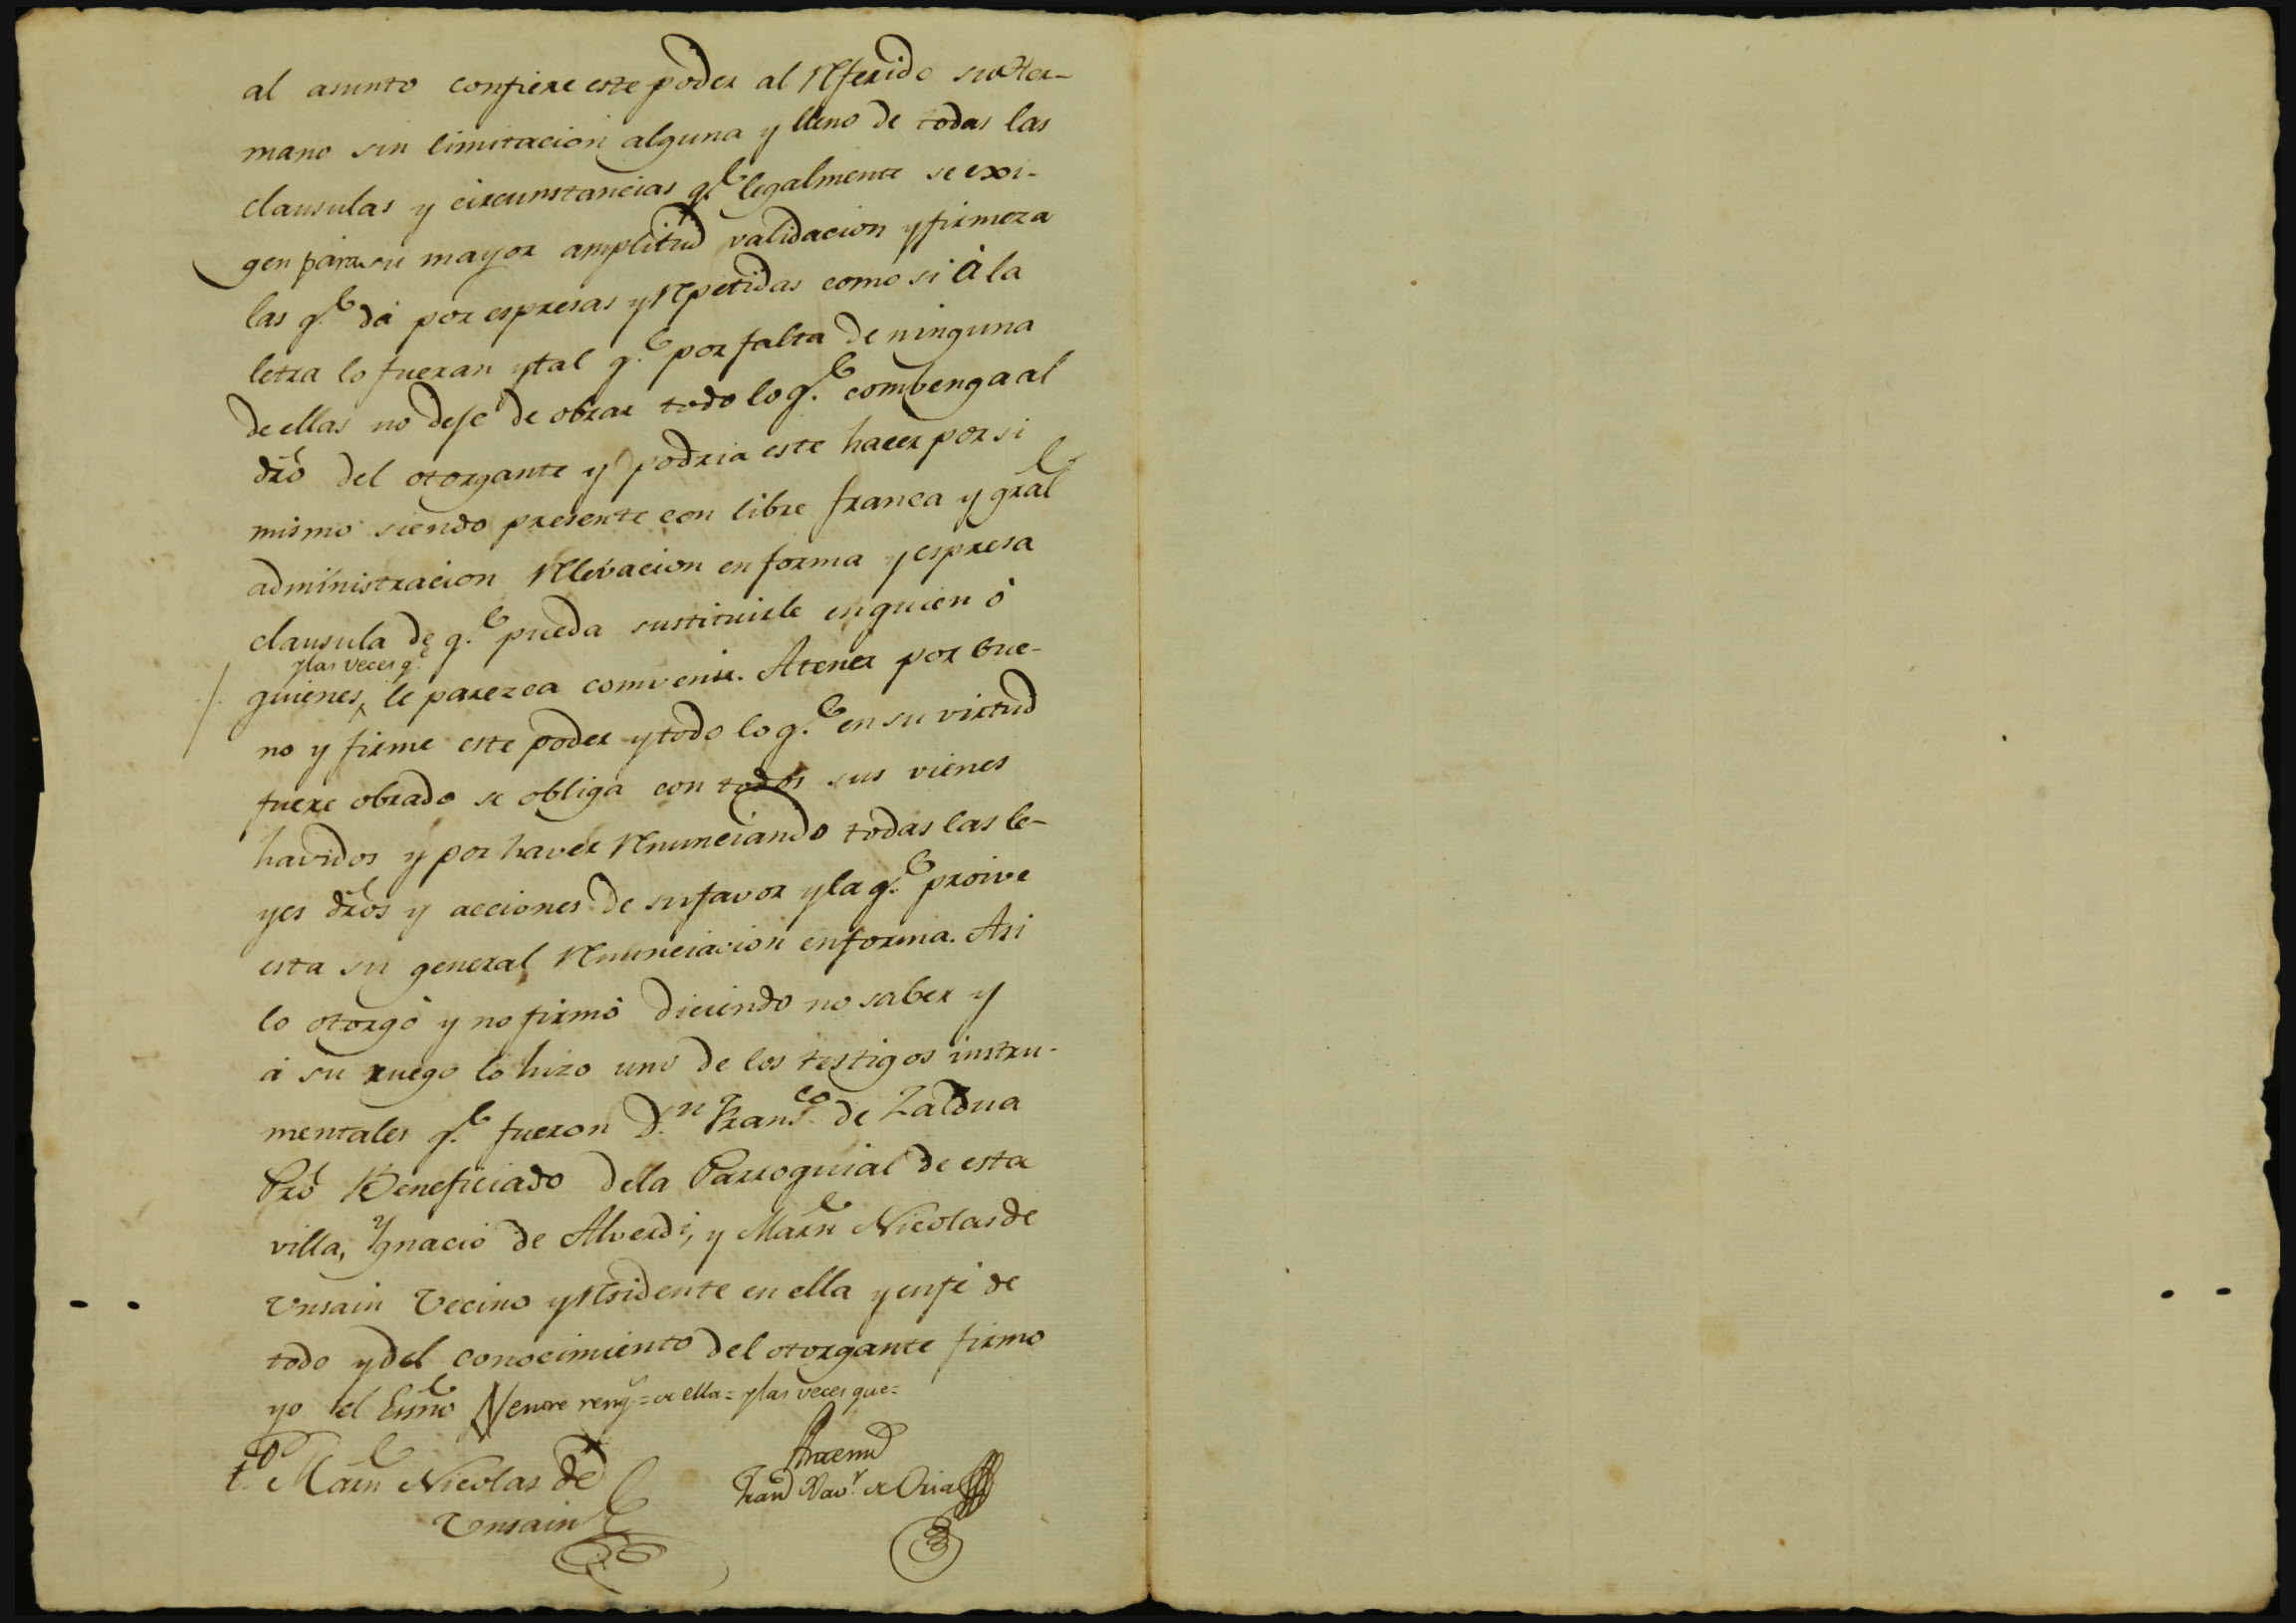 al asunto confiere este poder al Referido su Her-
mano sin limitacion alguna y lleno de todas las
clausulas y circunstancias q.e legalmente se exi-
gen para su mayor amplitud validacion y firmeza
las q.e dá por espresas y Repetidas como si à la
letra lo fueran y tal q.e por falta de ninguna
de ellas no deje de obrar todo lo q.e combenga al
dro del otorgante y podria este hacer por si
mismo siendo presente con libre franca y gral
administracion Relebacion en forma y espresa
clausula de q.e pueda sustituirle en quien ò
y las veces q.e
quienes le parezca comvenir. A tener por bue-
no y firme este poder y todo lo q.e en su virtud
fuere obrado se obliga con todos sus vienes
havidos y por haver Renunciando todas las le-
yes dros y acciones de su favor y la q.e proive
esta su general Renunciacion en forma. Asi
lo otorgó y no firmó diciendo no saber y
á su ruego lo hizo uno de los testigos instru-
mentales q.e fueron D.n Fran.co de Zaldua
Pro Beneficiado de la Parroquial de esta
villa, Ygnacio de Alverdi, y Marn Nicolas de
Unsain Vecino y Residente en ella y en fé de
todo y del conocimiento del otorgante firmo
yo el Esno entre reng.s = de ella = y las veces que =
t.o Marn Nicolas de
Unsain
Antemi
Fran Xav.r de Oria